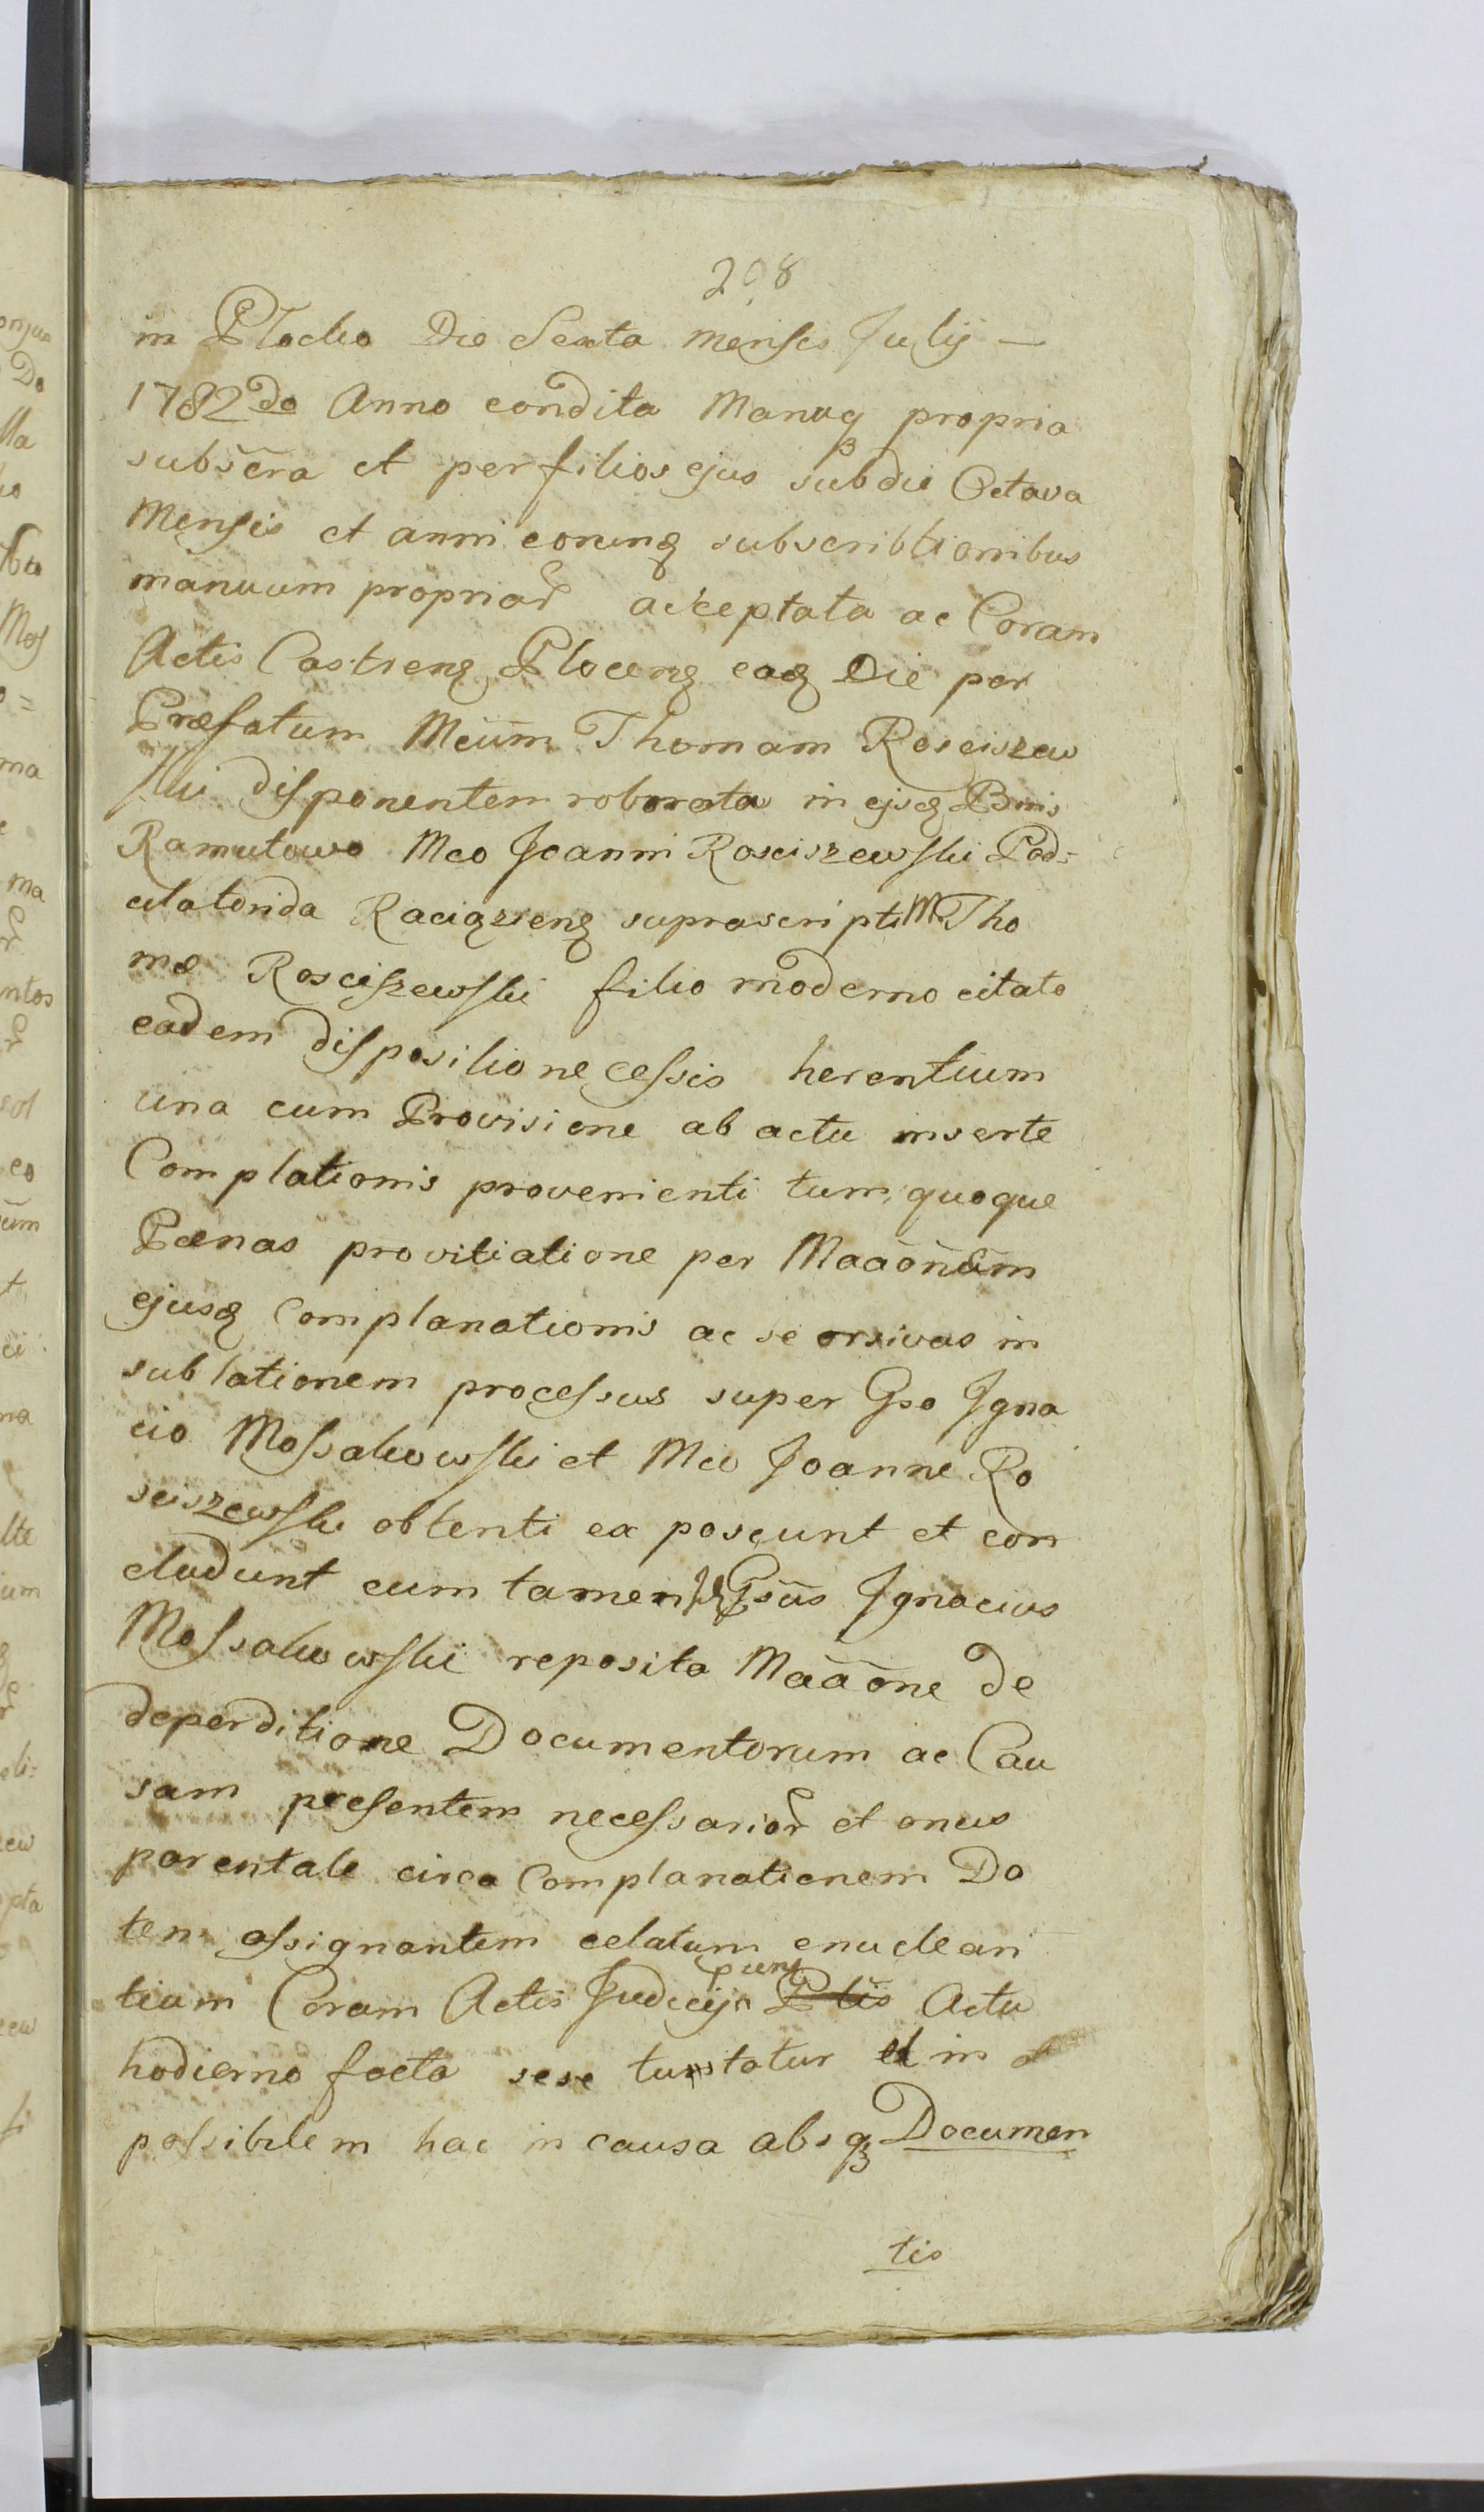 208
in Plocko Die Sexta Mensis Julij —
1782do Anno condita Manuq propria
subscra et per filios ejus subdie Octava
Mensis et anni eorunq subscribtionibus
manuum propriar acceptata ac Coram
Actis Castrenq Plocenq eaq Die per
Præfatum Mcum Thomam Rosciszew
ski disponentem roborata in ejsq Bnis
Ramutowo Mco Joanni Rosciszewski Pod=
celatorida Raciązienq suprascripti M Tho
mæ Rosciszewski filio moderno citato
eadem dispositione cessis herentium
una cum Provisione ab actu inserte
Complationis provenienti tum quoque
Pænas provitiatione per Maaonem
ejusq Complanationis ac seorsivas in
sublationem processus super Gso Igna
cio Mossakowski et Mco Joanne Ro
sciszewski obtenti ex poscunt et con
cludunt cum tamen Gsus Ignacius
Mossakowski reposita Maaone de
deperditione Documentorum ac Cau
sam presentem necessarior et onus
parentale circa Complanationem Do
tem assignantem celatum enuclean
tium Coram Actis Judicijs Ptis Actu
hodierno facta sese tustatur et in
possibilem hac in causa absq Documen
tis